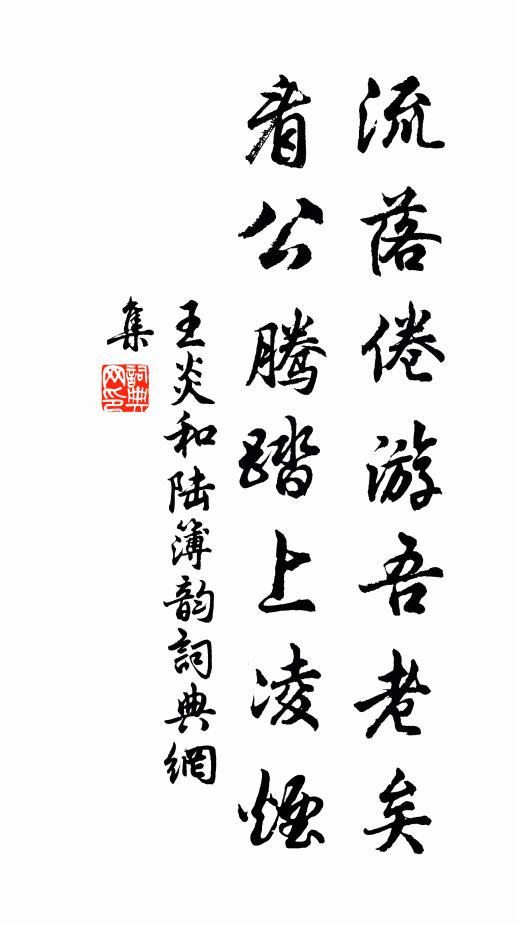 流落倦游吾老矣
看公腾踏上凌煙
王炎和陆簿韵詞典網
集
詞典
网印